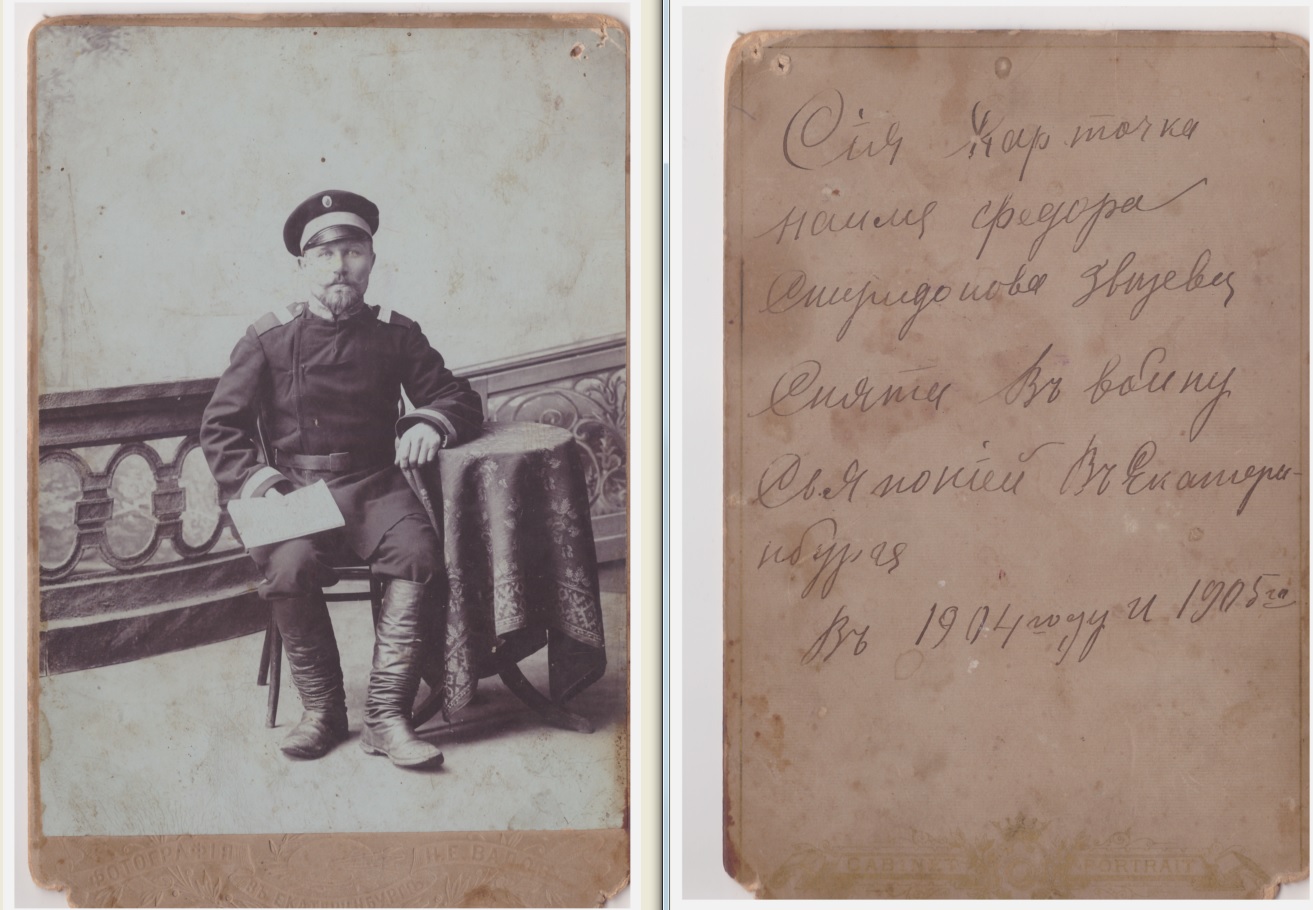 ФОТОГРАФІЯ
ВЪ ЕКАТЕРИНБУРГѢ
Сія Карточка
наимя федора
Спиридонова
Снята Въ воину
Съ Японіей Въ Екатери-
нбургя
Въ 1904 году и 1905 га
CABINET PORTRAIT